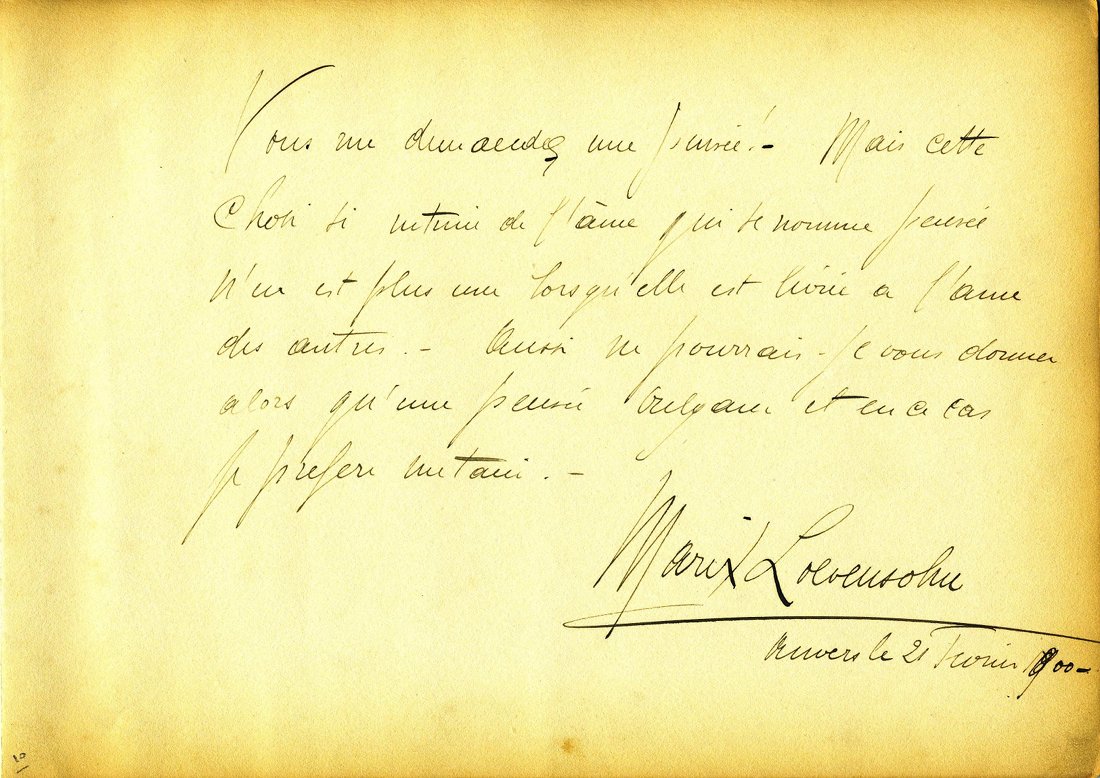 Vous me demandez une pensée! –  Mais cette
chose si intime de l'âme qui se nomme pensée
n'en est plus une lorsqu'elle est livrée a l'ame
des autres. – Aussi ne pourrais-je vous donner
alors qu'une pensée vulgaire et en ce cas
je prefere me taire. –
Marix Loevensohn
Anvers le 21 Fevrier 1900 –
10